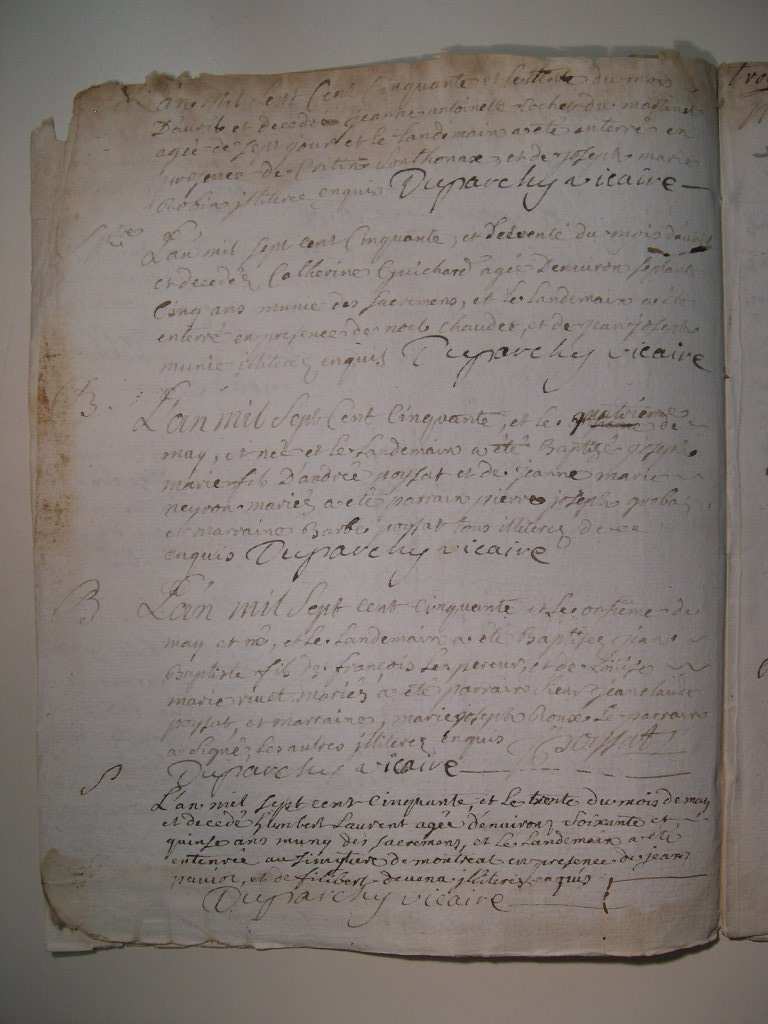 L'an mil sept cent cinquante et le du mois
D'avril et decedé jeanne antoinette du martinet
agée de sept jour et le landemain a eté enterré en
presence de et de joseph marie
Robin jlliteréz enquis Duparchy vicaire
Sep.re L'an mil sept cent Cinquante, et le trente du mois d'avril
et decedéz Catherine Guichard agée Denviron septante
Cinq ans munie des sacremens, et le landemain a eté
enterré en presence de noel chaudet et de jean joseph
munie jlliteréz enquis Duparchy vicaire
B. L'an mil sept Cent Cinquante, et le quatrieme de
may, et née et le landemain a été Baptisé joseph
marie fils D'andrée poysat et de jeanne marie
neyron mariéz a eté parrain pierre joseph
et marraine Barbe poysat tous jlliteréz de ce
enquis Duparchy vicaire
B L'an mil sept cent cinquante et le onsieme de
may et né, et le landemain a eté Baptisez jean
Baptiste fils de françois lempereur, et de Loüise
marie rivet mariéz a eté parrain sieur jean claude
poysat et marraine, marie joseph Roux. Le parrain
a signé Les autres jlliteréz enquis Poysat
Duparchy vicaire
S L'an mil sept cent cinquante, et le trente du mois de may
et decedé humbert Laurent agée d'environ soixante et
quinse ans muny des sacremens, et le landemain a eté
enterrée au simistiere de montreal en presence de jean
pavior, et de filibert devena jlliteréz enquis
Duparchy vicaire